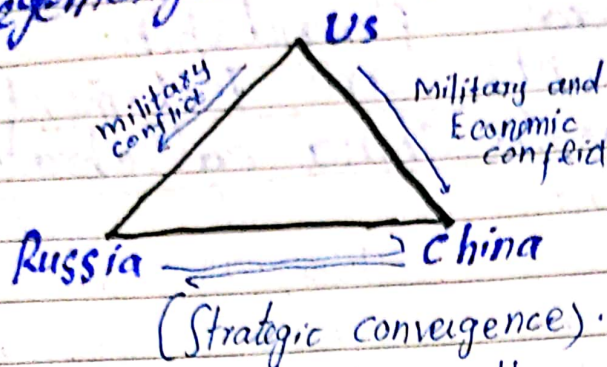 US
military
conflict
Military and
Economic
conflict
Russia
China
(Strategic convergence).